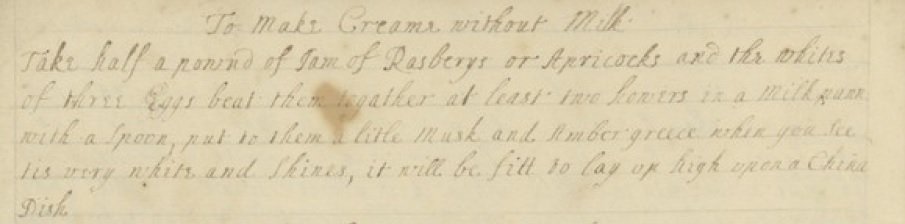 To Make Creame without Milk
Take half a pownd of Jam of Rasberys or Apricocks and the whites
of three Eggs beat them togather at least two howers in a Milk pann
with a Spoon, put to them a litle Musk and Ambergreece when you See
tis very white and Shines, it will be fitt to lay up high upon a China
Dish